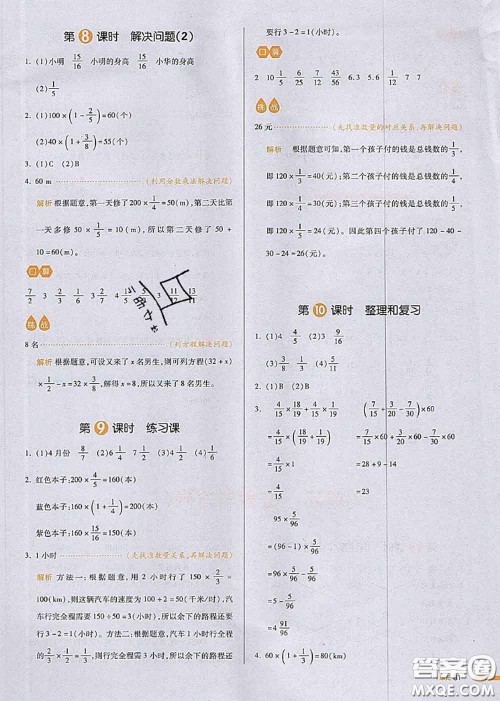 第8课时 解决问题(2)
1. (1)小明 15/16 小明的身高 15/16 小华的身高
(2)1/5
2. (1)100×(1-2/5)=60(个)
(2)40×(1+3/8)=55(个)
3. (1)C (2)B
4. 60 m (利用分数乘法解决问题)
解析 根据题意,第一天修了200×1/4=50(m),第二天比第
一天多修50×1/5=10(m),所以第二天修了50+
10=60(m)。
口算
7/2 3/10
挑战
8名 (列方程解决问题)
解析 根据题意,可设又来了x名男生,则可列方程(32+x)
×1/2-x=32×3/8,解得x=8,所以又来了8名男生。
第9课时 练习课
1. (1)4月份 8/7 (2)7/6 (3)1/6 (4)1/6
2. 红色本子:200×4/5=160(本)
蓝色本子:160×(1+1/4)=200(本)
紫色本子:160×15/16=150(本)
3. 1小时 (先找准数量关系,再解决问题)
解析 方法一:根据题意,用2小时行了150×2/3=
100(km),则这辆汽车的速度为100÷2=50(千米/时),
汽车行完全程需要150÷50=3(小时),所以余下的路程还要
行3-2=1(小时)。方法二:根据题意,汽车1小时行了全程的
2/3÷2=1/3,行完全程需要1÷1/3=3(小时),所以余下的路程还
要行3-2=1(小时)。
口算
2 10
挑战
26元 (先找准数量的对应关系,再解决问题)
解析 根据题意可知,第一个孩子付的钱是总钱数的1/3,
即120×1/3=40(元);第二个孩子付的钱是总钱数的1/4,
即120×1/4=30(元);第三个孩子付的钱是总钱数的1/5,
即120×1/5=24(元)。因此第四个孩子付了120-40-
30-24=26(元)。
第10课时 整理和复习
1. (1)4 4/5 (2)3 9/16
(3)3/8 1/3 (4)3/5
2. (1)B (2)B
3. 4/15×18/19+4/15×1/19 (7/15+3/20-7/30)×60
=4/15×(18/19+1/19) =7/15×60+3/20×60-7/30×60
=4/15×1 =28+9-14
=4/15 =23
95×5/96
=(96-1)×5/96
=96×5/96-5/96
=5-5/96
=4 91/96
4. 60×(1+1/3)=80(km)
答案圈
MXQE.COM